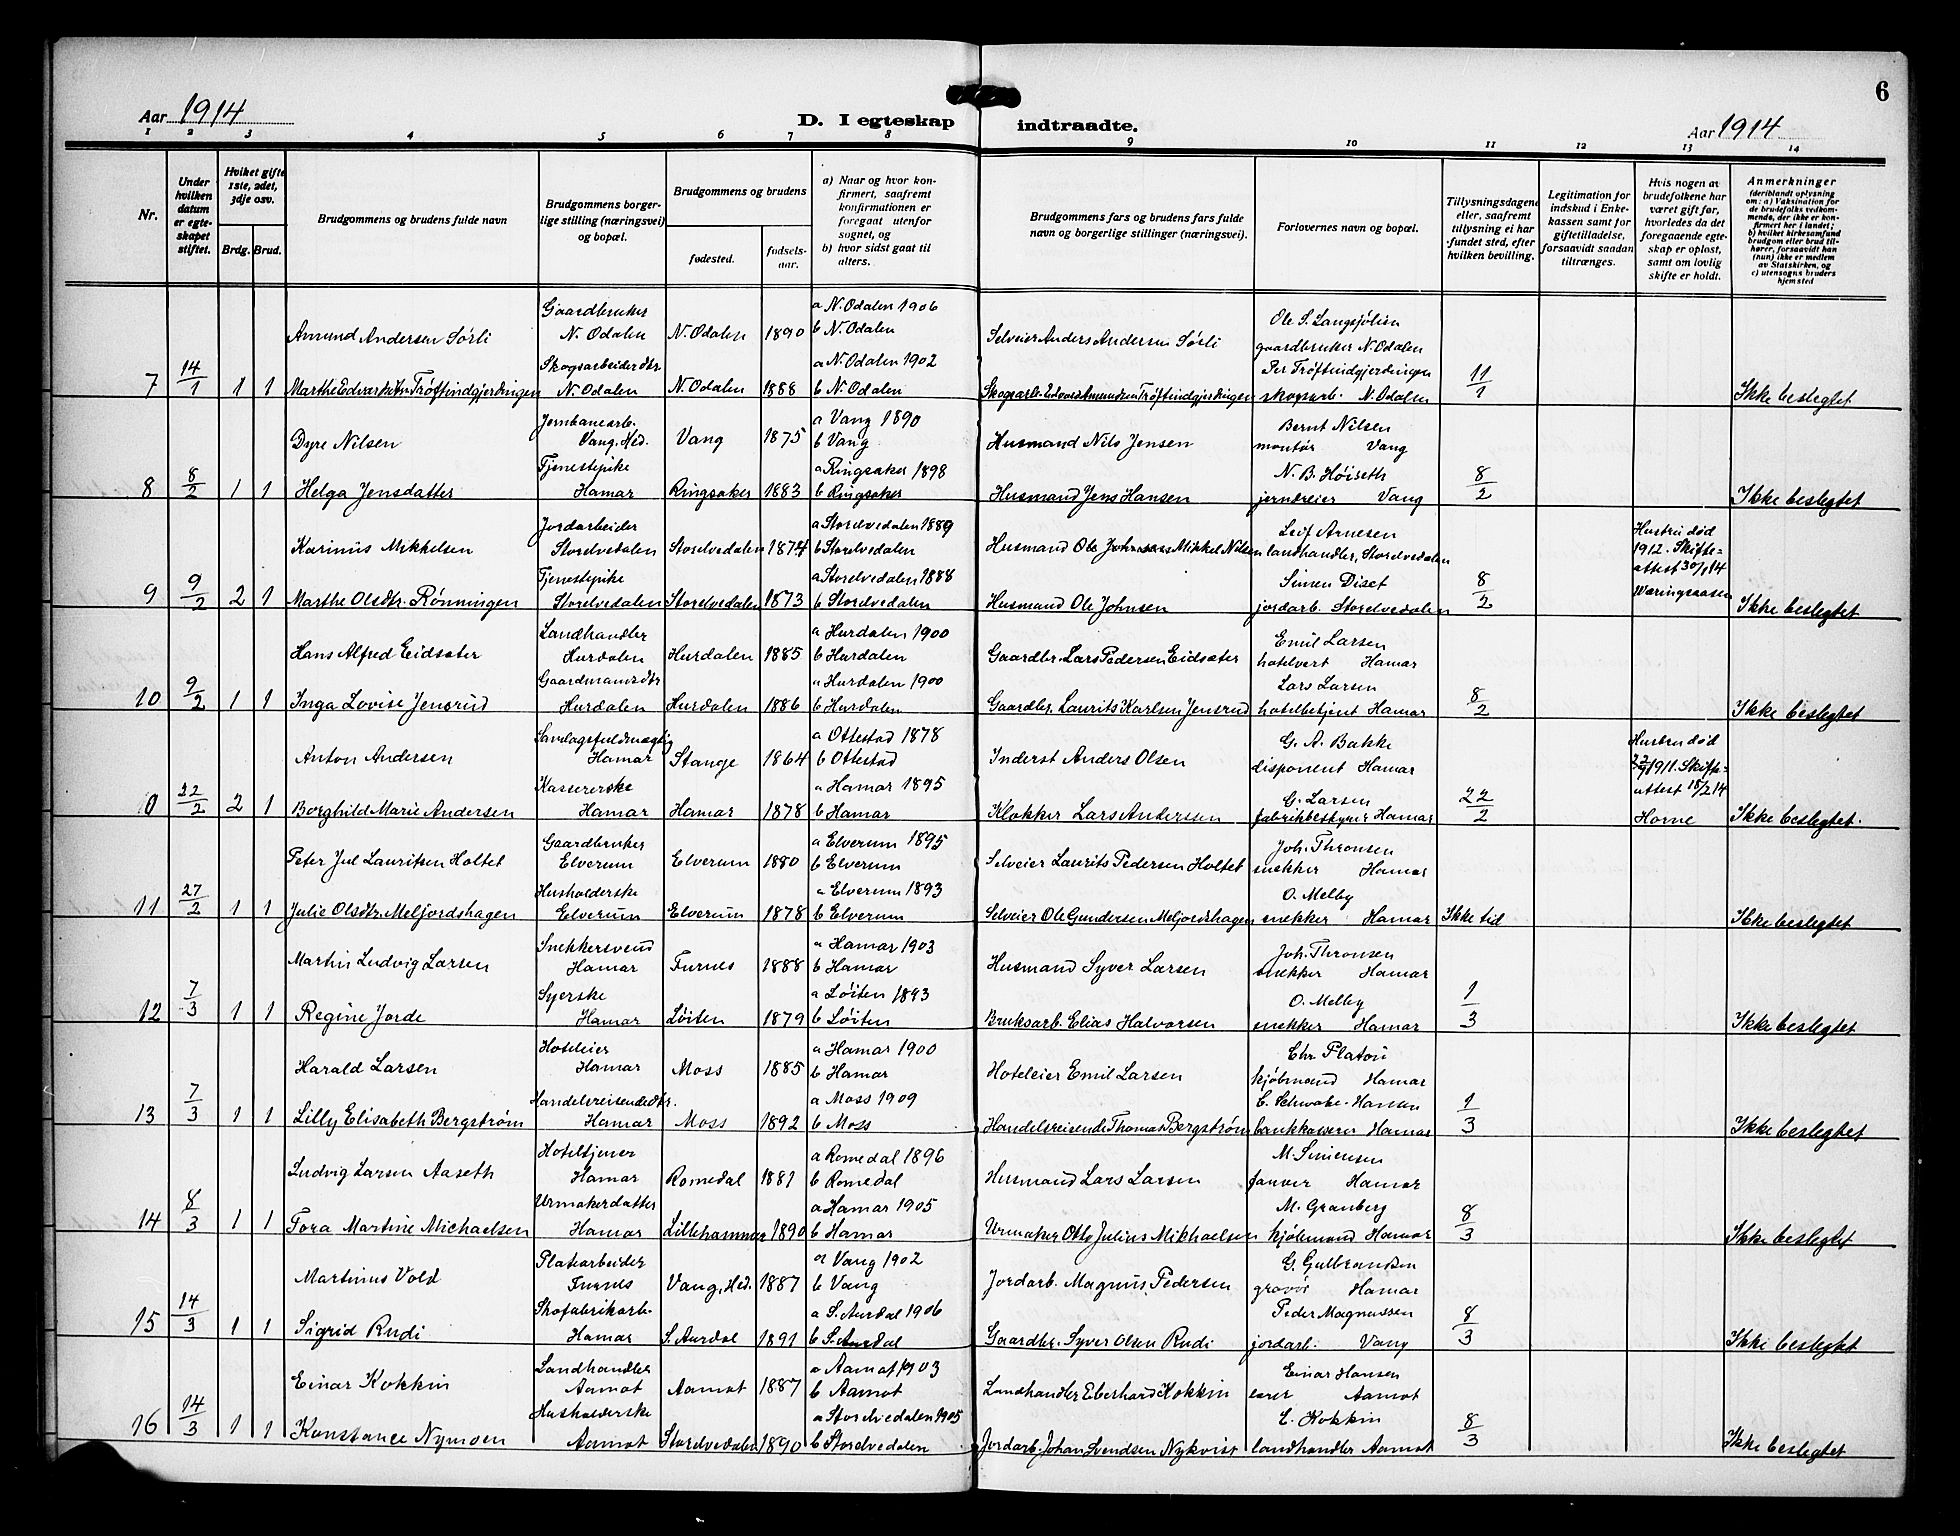 6
Aar 1914
D. I egteskap indtraadte.
Aar 1914
1 2 3 4 5 6 7 8 9 10 11 12 13 14
Nr.
Under hvilken datum er egteskapet stiftet.
Hvilket gifte 1ste, 2det, 3dje osv.
Brdg. Brud.
Brudgommens og brudens fulde navn
Brudgommens borgerlige stilling (næringsvei) og bopæl.
Brudgommens og brudens
fødested.
fødselsaar.
a) Naar og hvor konfirmert, saafremt konfirmationen er foregaat utenfor sognet, og
b) hvor sidst gaat til alters.
Brudgommens fars og brudens fars fulde navn og borgerlige stillinger (næringsvei).
Forlovernes navn og bopæl.
Tillysningsdagene eller, saafremt tillysning ei har fundet sted, efter hvilken bevilling.
Legitimation for indskud i Enkekassen samt for giftetilladelse, forsaavidt saadan tiltrænges.
Hvis nogen av brudefolkene har været gift før, hvorledes da det foregaaende egteskap er opløst, samt om lovlig skifte er holdt.
Anmerkninger
(deriblandt oplysning om: a) Vaksination for de brudefolks vedkommende, der ikke er konfirmert her i landet; b) hvilket kirkesamfund brudgom eller brud tilhører, forsaavidt han (hun) ikke er medlem av Statskirken, og c) utensogns bruders hjemsted
Amund Andersen Sørli Gaardbruker N. Odalen N. Odalen 1890 a N. Odalen 1906 b N. Odalen Selveier Anders Andersen Sørli Ole S. Langsjølien gaardbruker N. Odalen
7 14/1 1 1 Marthe Edvardsdtr. Trøftindgjerdingen Skogsarbeiderdtr N. Odalen N. Odalen 1888 a N. Odalen 1902 b N. Odalen Skogsarb. Edvard Amundsen Trøftindgjerdingen Per Trøftindgjerdingen skogsarb. N. Odalen 11/1 Ikke beslegtet
Dyre Nilsen Jernbanearb. Vang, Hed. Vang 1875 a Vang 1890 b Vang Husmand Nils Jensen Bernt Nilsen montør Vang
8 8/2 1 1 Helga Jensdatter Tjenestepike Hamar Ringsaker 1883 a Ringsaker 1898 b Ringsaker Husmand Jens Hansen N. B. Høiseth jerndreier Vang 8/2 Ikke beslegtet
Karinus Mikkelsen Jordarbeider Storelvedalen Storelvedalen 1874 a Storelvedalen 1889 b Storelvedalen Husmand Mikkel Nilsen Leif Arnesen landhandler, Storelvedalen Hustru død 1912. Skifteattest 30/1 14
9 9/2 2 1 Marthe Olsdtr. Rønningen Tjenestepike Storelvedalen Storelvedalen 1873 a Storelvedalen 1888 b Storelvedalen Husmand Ole Johnsen Simen Diset jordarb. Storelvedalen 8/2 Væringsaasen Ikke beslegtet
Hans Alfred Eidsæter Landhandler Hurdalen Hurdalen 1885 a Hurdalen 1900 b Hurdalen Gaardbr. Lars Pedersen Eidsæter Emil Larsen hotelvert Hamar
10 9/2 1 1 Inga Lovise Jensrud Gaardmannsdtr Hurdalen Hurdalen 1886 a Hurdalen 1900 b Hurdalen Gaardbr. Laurits Karlsen Jensrud Lars Larsen hotelbetjent Hamar 8/2 Ikke beslegtet
Anton Andersen Hamar Stange 1864 a Ottestad 1878 b Ottestad Inderst Anders Olsen G. A. Bakke disponent Hamar Hustru død 1911. Skifteattest 18/2 14
10 22/2 2 1 Borghild Marie Andersen Kassererske Hamar Hamar 1878 a Hamar 1895 b Hamar Klokker Lars Andersen G. Larsen fabrikbestyrer Hamar 22/2 Horne Ikke beslegtet.
Peter Jul Lauritsen Holtet Gaardbruker Elverum Elverum 1880 a Elverum 1895 b Elverum Selveier Laurits Pedersen Holtet Joh. Thronsen snekker Hamar
11 27/2 1 1 Julie Olsdtr. Meljordshagen Husholderske Elverum Elverum 1878 a Elverum 1893 b Elverum Selveier Ole Gundersen Meljordshagen O. Melby snekker Hamar Ikke tid Ikke beslegtet
Martin Ludvig Larsen Snekkersvend Hamar Furnes 1888 a Hamar 1903 b Hamar Husmand Syver Larsen Joh. Thronsen snekker Hamar
12 7/3 1 1 Regine Jorde Syerske Hamar Løiten 1879 a Løiten 1893 b Løiten Bruksarb. Elias Halvorsen O. Melby snekker Hamar 1/3 Ikke beslegtet
Harald Larsen Hoteleier Hamar Moss 1885 a Hamar 1900 b Hamar Hoteleier Emil Larsen Chr Platou kjøbmand Hamar
13 7/3 1 1 Lilly Elisabeth Bergstrøm Handelsreisendedtr. Hamar Moss 1892 a Moss 1909 b Moss Handelsreisende Thomas Bergstrøm E. Schwabe-Hansen bankkasserer Hamar 1/3 Ikke beslegtet
Ludvig Larsen Aaseth Hoteltjener Hamar Romedal 1881 a Romedal 1896 b Romedal Husmand Lars Larsen M. Simensen Hamar
14 8/3 1 1 Tora Martine Michaelsen Urmakerdatter Hamar Lillehammer 1890 a Hamar 1905 b Hamar Urmaker Otto Julius Mikhaelsen M. Granberg kjøbmand Hamar 8/3 Ikke beslegtet
Martinus Vold Platearbeider Furnes Vang, Hed. 1887 a Vang 1902 b Vang Jordarb. Magnus Pedersen G. Gulbrandsen gravør Hamar
15 14/3 1 1 Sigrid Rudi Skofabrikarb. Hamar S. Aurdal 1891 a S. Aurdal 1906 b S. Aurdal Gaardbr. Syver Olsen Rudi Peder Magnussen jordarb. Vang 8/3 Ikke beslegtet
Einar Kokkin Landhandler Aamot Aamot 1887 a Aamot 1903 b Aamot Landhandler Eberhard Kokkin Einar Hansen lærer Aamot
16 14/3 1 1 Konstance Nymoen Husholderske Aamot Storelvedalen 1890 a Storelvedalen 1905 b Storelvedalen Jordarb. Johan Svendsen Nykvist E. Kokkin landhandler Aamot 8/3 Ikke beslegtet